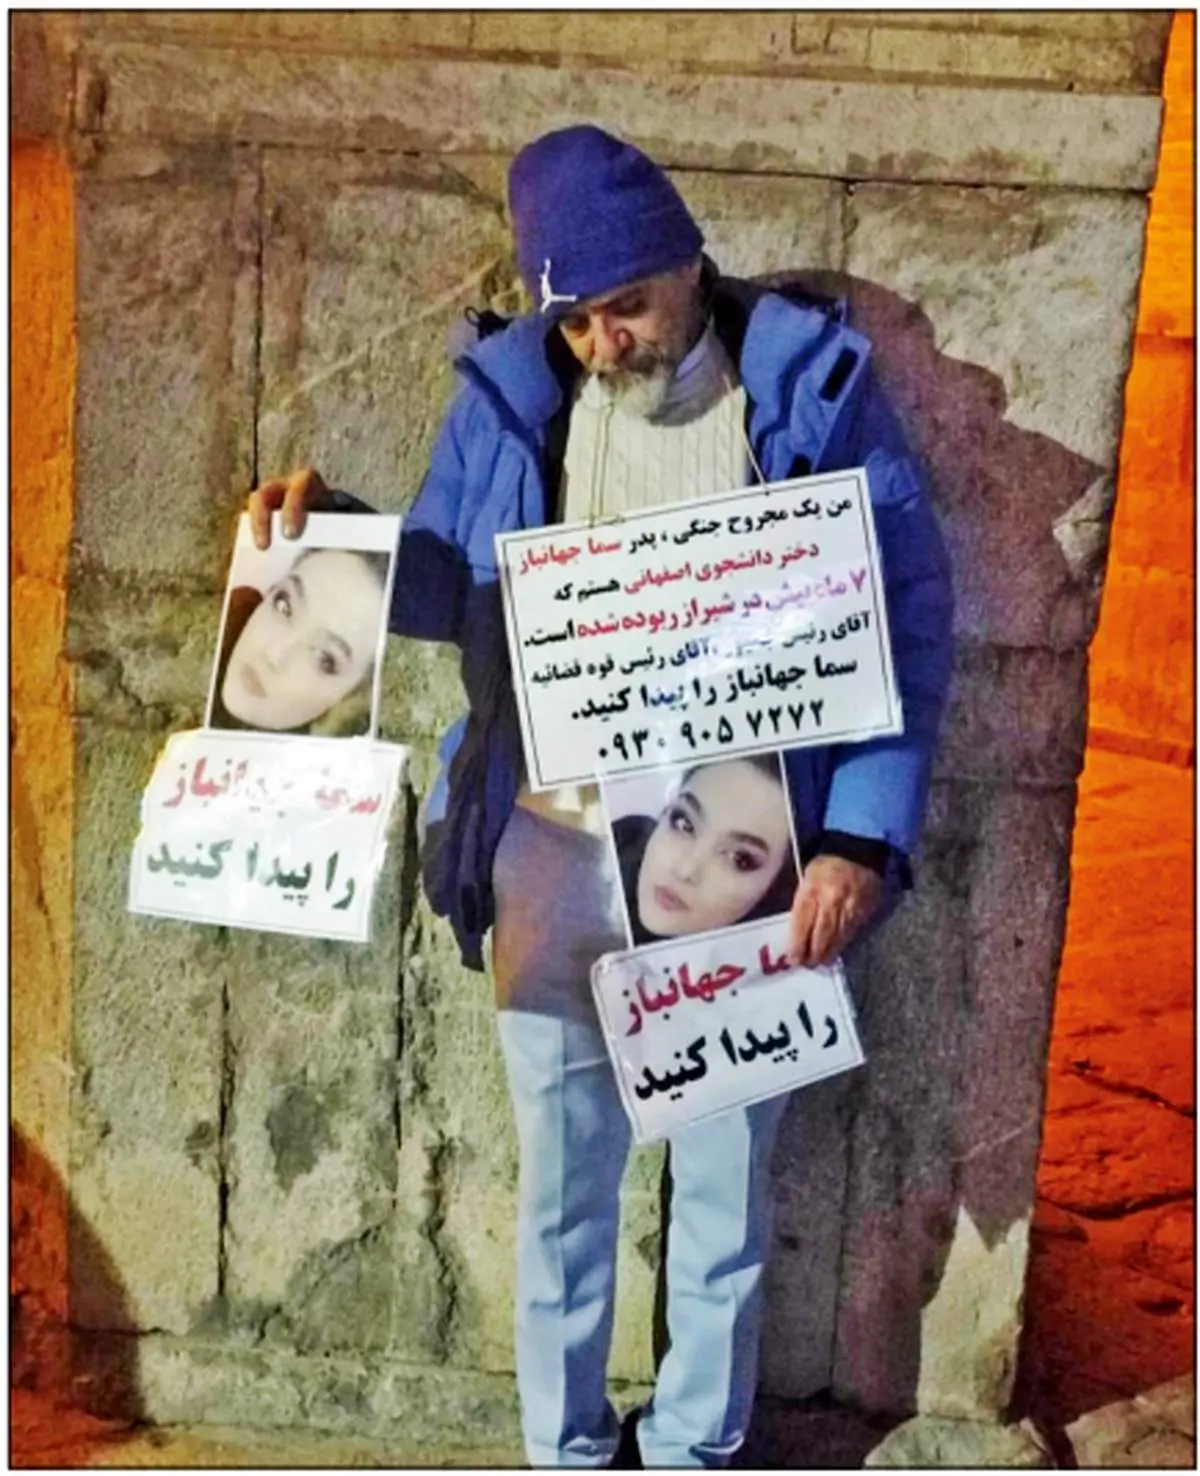 من یک مجروح جنگی ، پدر سما جهانباز
دختر دانشجوی اصفهانی هستم که
۷ ماه پیش در شیراز ربوده شده است.
آقای رئیس جمهور ،آقای رئیس قوه قضائیه
سما جهانباز را پیدا کنید.
۰۹۳۰ ۹۰۵ ۷۲۷۲
سما جهانباز
را پیدا کنید
جهانباز
را پیدا کنید